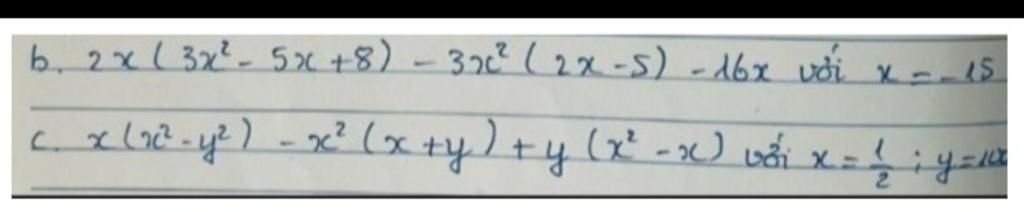 b. 2x ( 3x² - 5x + 8) - 3x² ( 2x - 5) - 16x với x = -15
c. x(x² - y²) - x² (x + y) + y (x² - x) với x = 1/2 ; y =